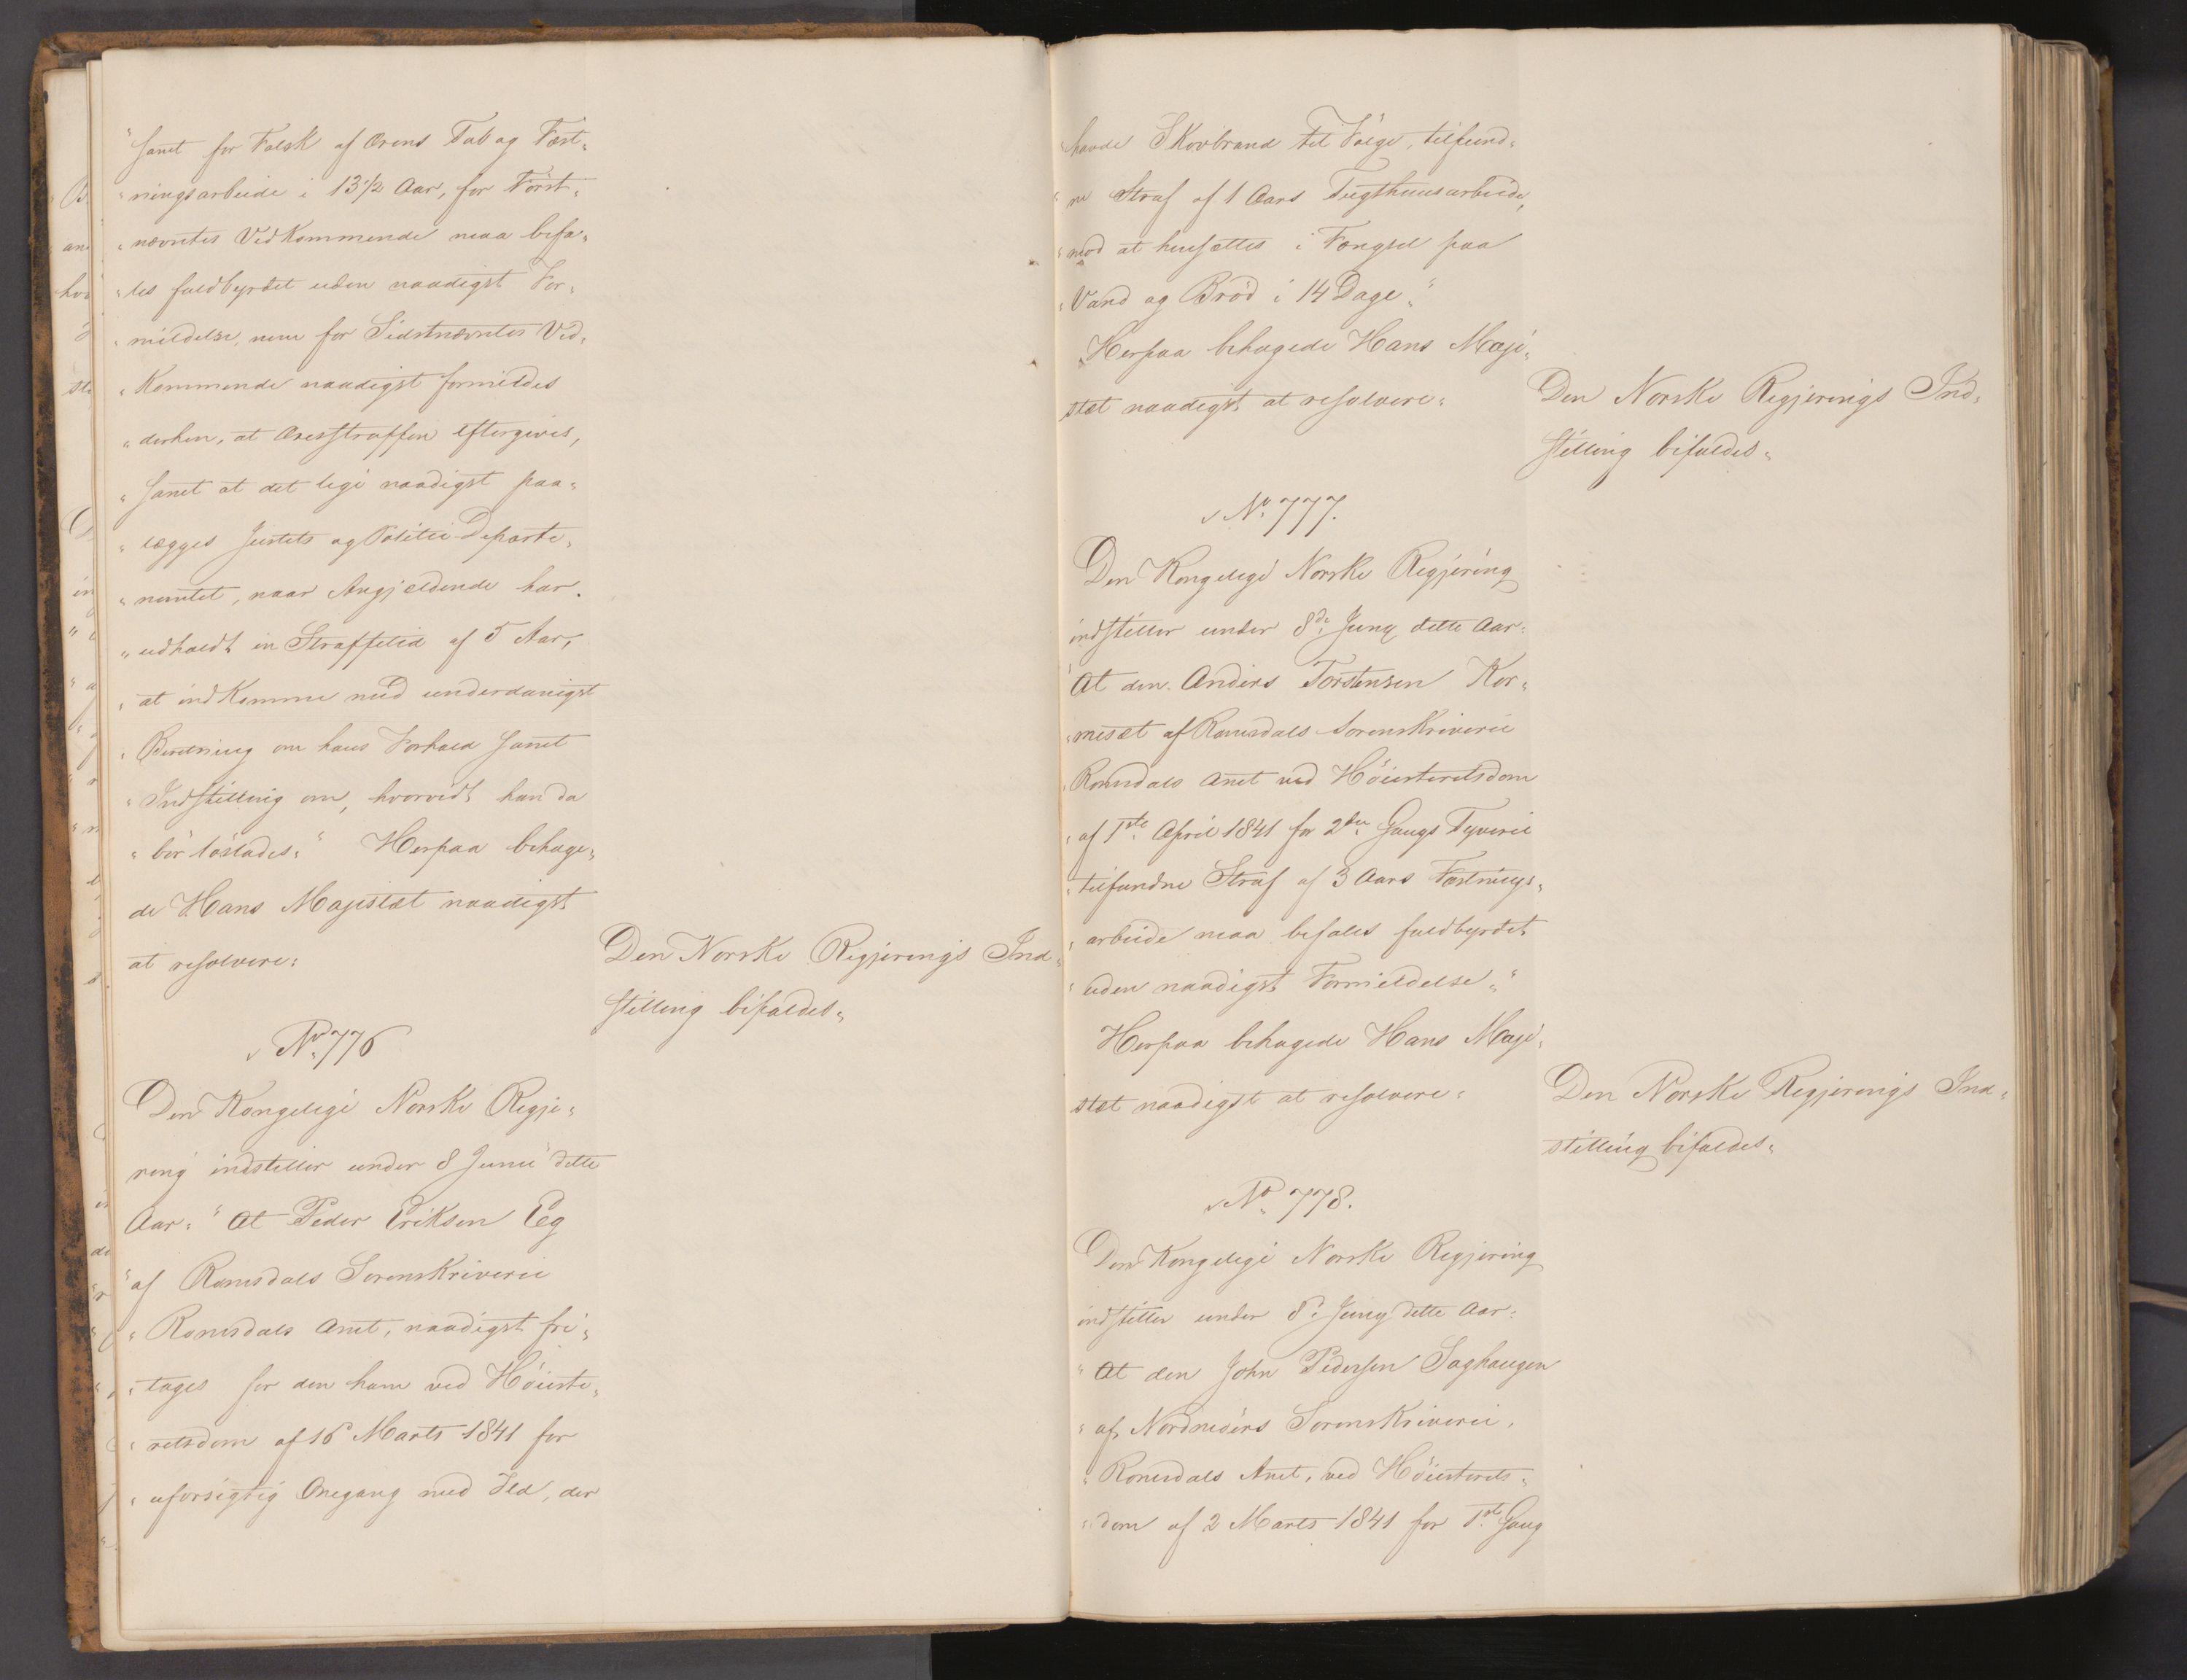 "samt for Falsk af Ærens Tab og Fæst-
"ningsarbeide i 13 1/2 Aar, for Först-
"nævntes Vedkommende maa befa-
"les fuldbyrdet uden naadigst For-
"mildelse, men for Sidstnævntes Ved-
"kommende naadigst formildes
"derhen, at Æresstraffen eftergives,
"samt at det lige naadigst paa-
"lægges Justits og Politie-Departe-
"mentet, naar Angjældende har
"udholdt en Straffetid af 5 Aar,
"at indkomme med underdanigst
"Beretning om hans Forhold samt
"Indstilling om, hvorvidt han da
"bör löslades." Herpaa behage-
de Hans Majestæt naadigst
at resolvere:
Den Norske Regjerings Ind-
stilling bifaldes.
No 776
Den Kongelige Norske Regje-
ring indstiller under 8 Junii dette
Aar: "At Peder Eriksen Eeg
"af Romsdals Sorenskriverie
"Romsdals Amt, naadigst fri-
"tages for den ham ved Höieste-
"retsdom af 16 Marts 1841 for
"uforsigtig Omgang med Ild, der
"havde Skovbrand til Fölge, tilfund-
"ne Straf af 1 Aars Tugthuusarbeide,
"mod at hensættes i Fængsel paa
"Vand og Bröd i 14 Dage."
Herpaa behagede Hans Maje-
stæt naadigst at resolvere:
Den Norske Regjerings Ind-
stilling bifaldes.
No 777.
Den Kongelige Norske Regjering
indstiller under 8de Juny dette Aar:
"At den Anders Torstensen Kor-
"mesæt af Romsdals Sorenskriverie
"Romsdals Amt ved Höiesteretsdom
"af 1ste April 1841 for 2den Gangs Tyverie
"tilfundne Straf af 3 Aars Fæstnings-
"arbeide maa befales fuldbyrdet
"uden naadigst Formildelse."
Herpaa behagede Hans Maje-
stæt naadigst at resolvere:
Den Norske Regjerings Ind-
stilling bifaldes.
No 778.
Den Kongelige Norske Regjering
indstiller under 8: Juny dette Aar:
"At den John Pedersen Saghaugen
"af Nordmörs Sorenskriverie,
"Romsdals Amt, ved Höiesterets-
"dom af 2 Marts 1841 for 1ste Gang